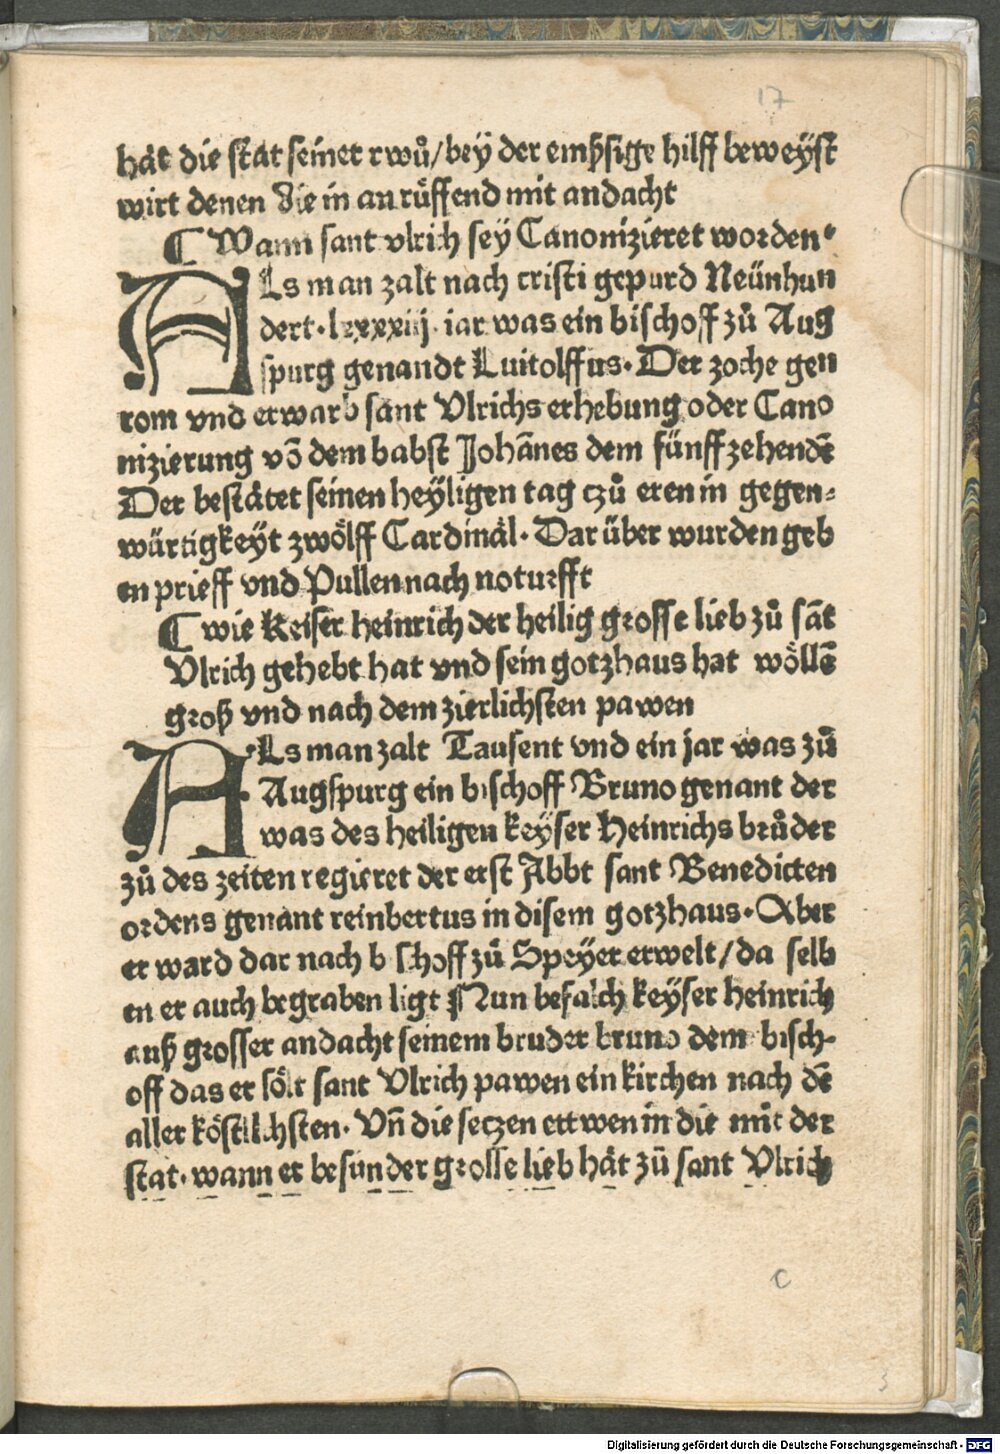 17
hät die stat seiner rwů/bey der emßsige hilff beweyst
wirt denen die in an rüffend mit andacht
¶ Wann sant vlrich sey Canonizieret worden
ALs man zalt nach cristi gepurd Neünhun
dert·lxxxxiij·iar was ein bischoff zů Aug
spurg genandt Luitolffus·Der zoche gen
rom vnd erwarb sant Vlrichs erhebung oder Cano
nizierung võ dem babst Johãnes dem fünffzehendẽ
Der bestätet seinen heyligen tag czů eren in gegen⸗
würtigkeyt zwölff Cardinäl·Dar über wurden geb
en prieff vnd Pullen nach noturfft
¶ wie Keiser heinrich der heilig grosse lieb zů sãt
Vlrich gehebt hat vnd sein gotzhaus hat wöllẽ
groß vnd nach dem zierlichsten pawen
ALs man zalt Tausent vnd ein jar was zů
Augspurg ein bischoff Bruno genant der
was des heiligen keyser Heinrichs brůder
zů des zeiten regieret der erst Abbt sant Benedicten
ordens genant reinbertus in disem gotzhaus·Aber
er ward dar nach bischoff zů Speyer erwelt/da selb
en er auch begraben ligt Nun befalch keyser heinrich
auß grosser andacht seinem bruder bruno dem bisch-
off das er sölt sant Vlrich pawen ein kirchen nach dẽ
aller köstlichsten·Vñ die seczen ettwen in die mit der
stat·wann er besunder grosse lieb hät zů sant Vlrich
c
3
Digitalisierung gefördert durch die Deutsche Forschungsgemeinschaft - DFG